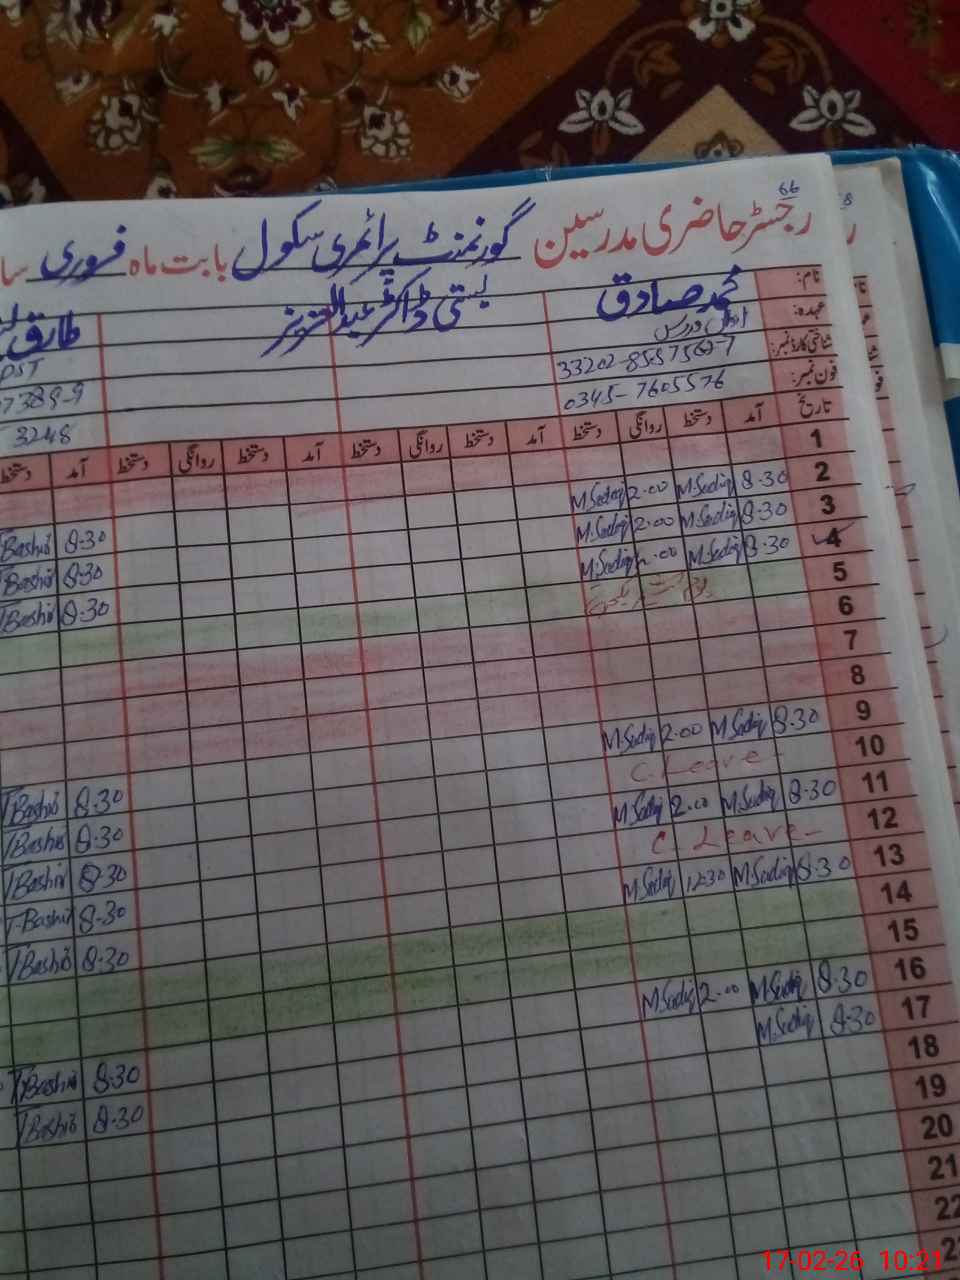 66
رجسٹر حاضری مدرسین گورنمنٹ پرائمری سکول بابت ماہ فروری سا
نام: محمد صادق بستی ڈاکٹر عبدالعزیز طارق
عہدہ: اول مدرس PST
شناختی کارڈ نمبر: 07389-9
فون نمبر: 0345-7605576 3248
تاریخ آمد دستخط روانگی دستخط آمد دستخط روانگی دستخط آمد دستخط روانگی دستخط آمد دستخط
1
2 8-30 M.Sadiq 2-00 M.Sadiq 8-30 TBashir
3 8-30 M.Sadiq 2-00 M.Sadiq 8-30 TBashir
4 8-30 M.Sadiq 2-00 M.Sadiq 8-30 TBashir
5
6
7
8
9 8-30 M.Sadiq 2-00 M.Sadiq 8-30 TBashir
10 C. Leave - 8-30 TBashir
11 8-30 M.Sadiq 2-00 M.Sadiq 8-30 TBashir
12 C. Leave - 8-30 T-Bashir
13 8-30 M.Sadiq 12-30 M.Sadiq 8-30 TBashir
14
15
16 8-30 M.Sadiq 2-00 M.Sadiq 8-30 TBashir
17 8-30 M.Sadiq 8-30 TBashir
18
19
20
21
22
17-02-26 10:21